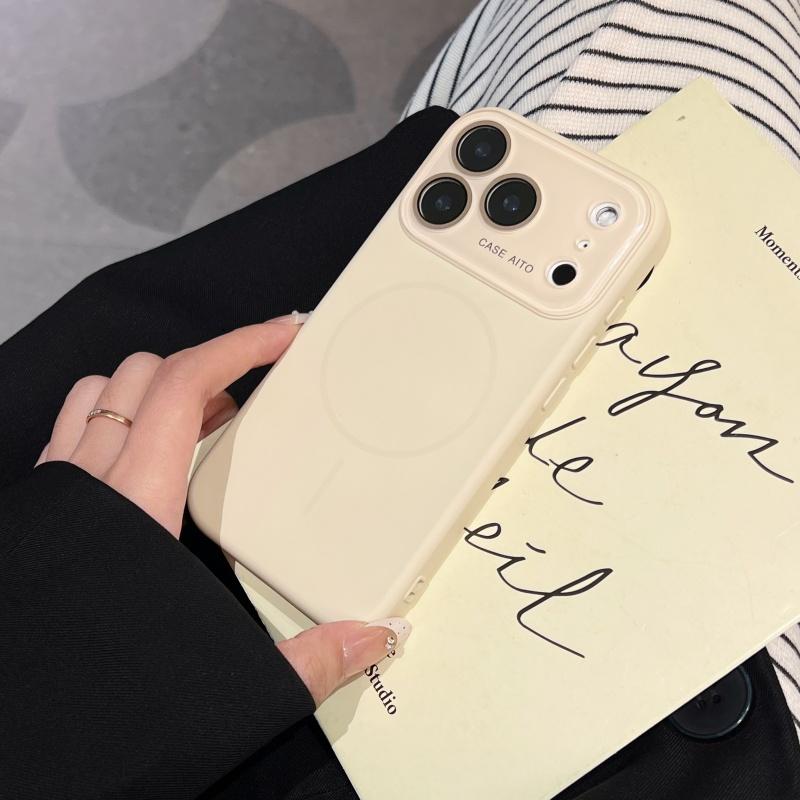 CASE AITO
Moments
ayon
de
eil
Studio